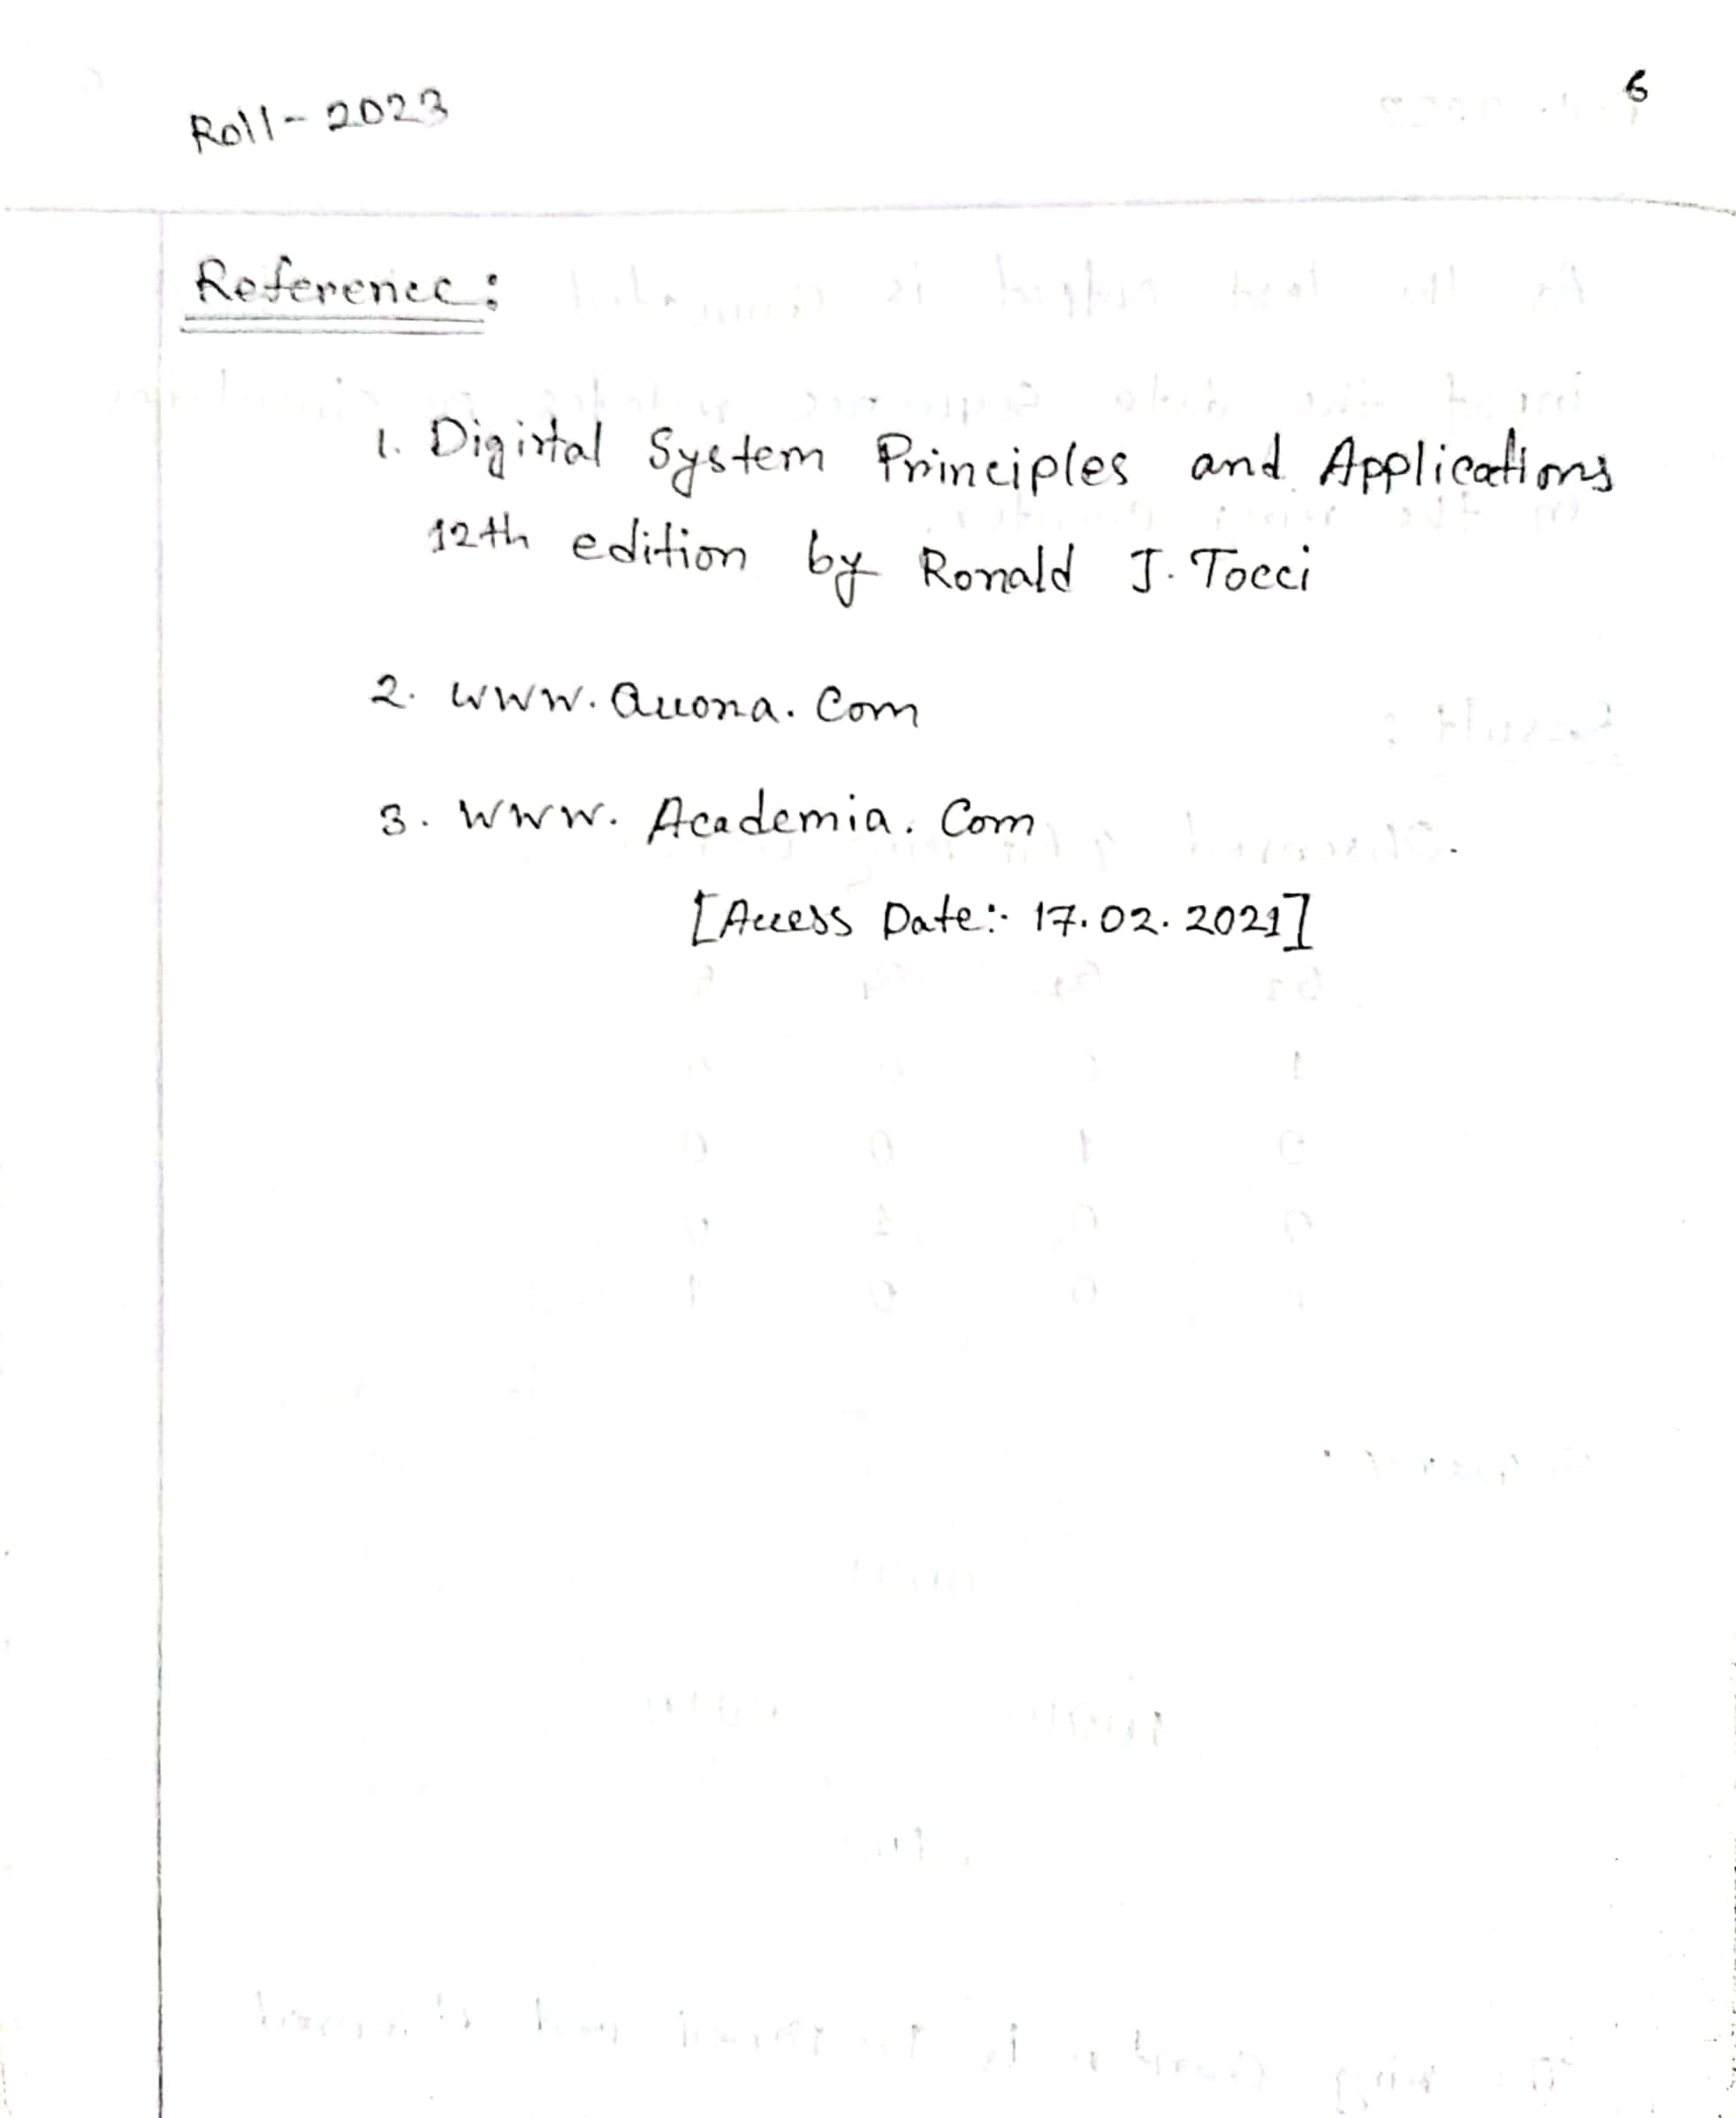 Roll - 2023
6
Reference:
1. Digintal System Principles and Applications
12th edition by Ronald J. Tocci
2. www.Quona.Com
3. www.Academia.Com
[Access Date: 17.02.2021]